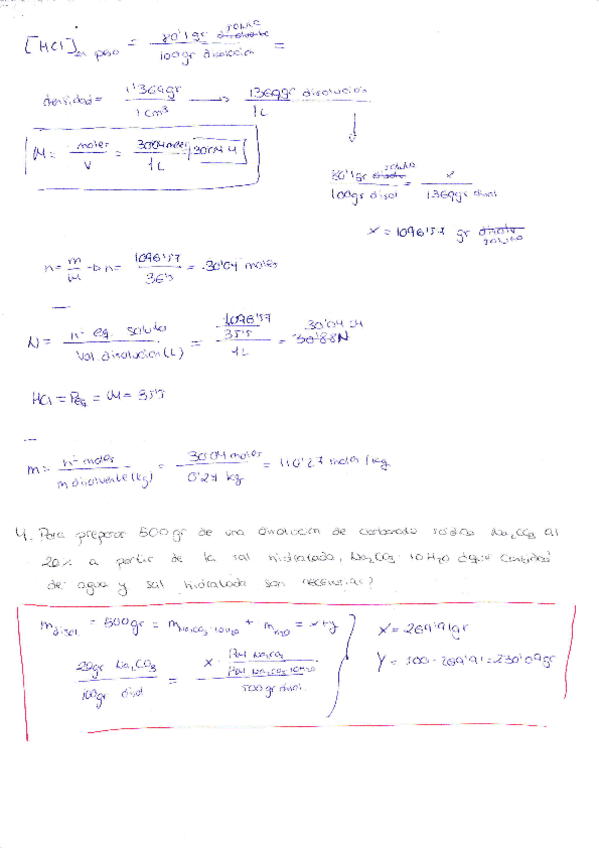 [HCl] en peso = 80'1gr soluto / 100gr disolución =
densidad = 1'369gr / 1cm³ → 1369gr disolución / 1L
M = moles / V = 30'04 moles / 1L = 30'04 M
80'1gr soluto / 100gr disol = x / 1369gr disol
x = 1096'57 gr soluto
n = m/M → n = 1096'57 / 36'5 = 30'04 moles
N = nº eq. soluto / Vol. disolución (L) = 1096'57 / 35'5 / 1L = 30'88N 30'04
HCl = Peq = M = 35'5
m = nº moles / m disolvente (kg) = 30'04 moles / 0'27 kg = 110'27 moles/kg
4. Para preparar 500gr de una disolución de carbonato sódico Na₂CO₃ al
20% a partir de la sal hidratada, Na₂CO₃·10H₂O ¿qué cantidad
de agua y sal hidratada son necesarias?
m disol. = 500gr = m Na₂CO₃·10H₂O + m H₂O = x+y
x = 269'91gr
20gr Na₂CO₃ / 100gr disol = x · PM Na₂CO₃ / PM Na₂CO₃·10H₂O / 500gr disol.
y = 500 - 269'91 = 230'09gr